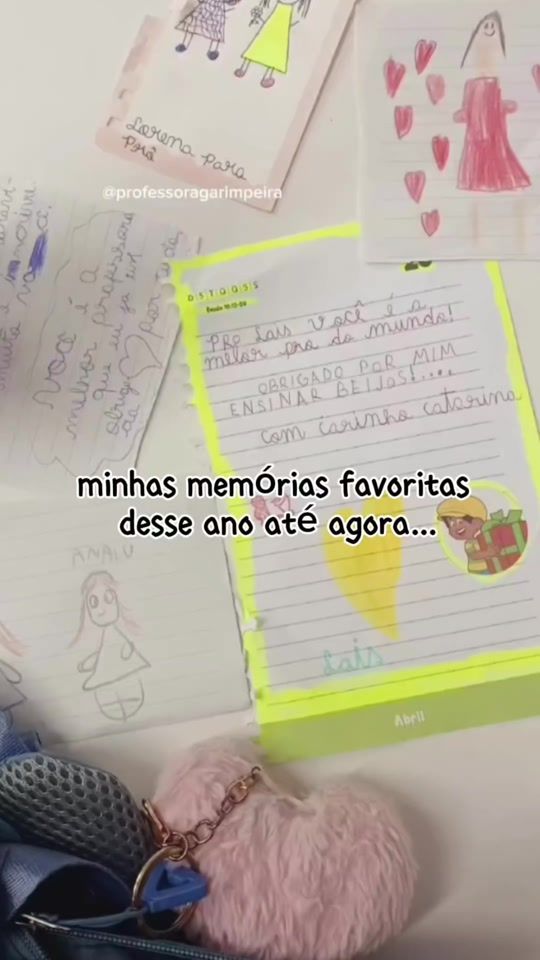 Lorena para
Prô
@professoragarimpeira
você é a
melhor professora
que eu já tive
D S T Q Q S S
PRO Lais você é a
melor pro do mundo!
OBRIGADO POR MIM
ENSINAR BEIJOS!....
com carinho catarina
minhas memórias favoritas
desse ano até agora...
ANALU
Lais
Abril